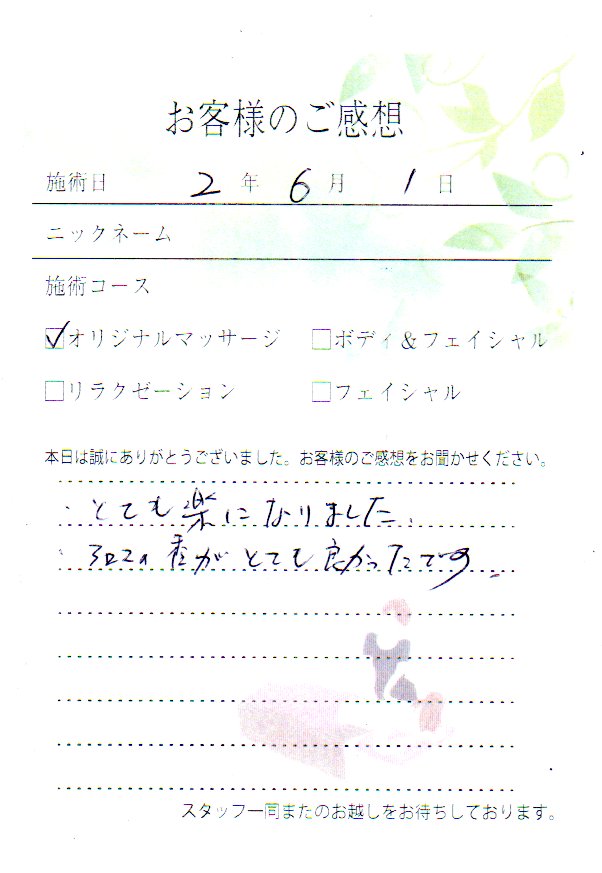 お客様のご感想
施術日 2年 6月 1日
ニックネーム
施術コース
☑オリジナルマッサージ □ボディ&フェイシャル
□リラクゼーション □フェイシャル
本日は誠にありがとうございました。お客様のご感想をお聞かせください。
・とても楽になりました。
・アロマの香がとても良かったです。
スタッフ一同またのお越しをお待ちしております。